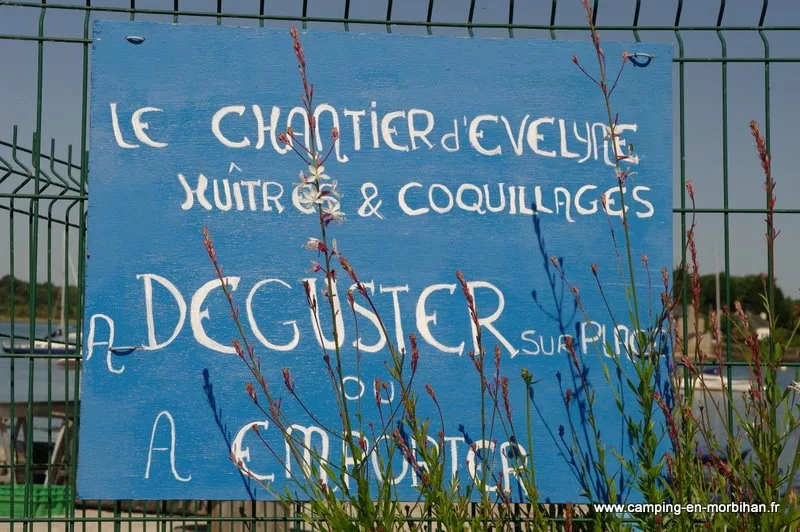 LE CHANTIER d'EVELYNE
HUÎTRES & COQUILLAGES
A DEGUSTER SUR PLACE
OU
A EMPORTER
www.camping-en-morbihan.fr